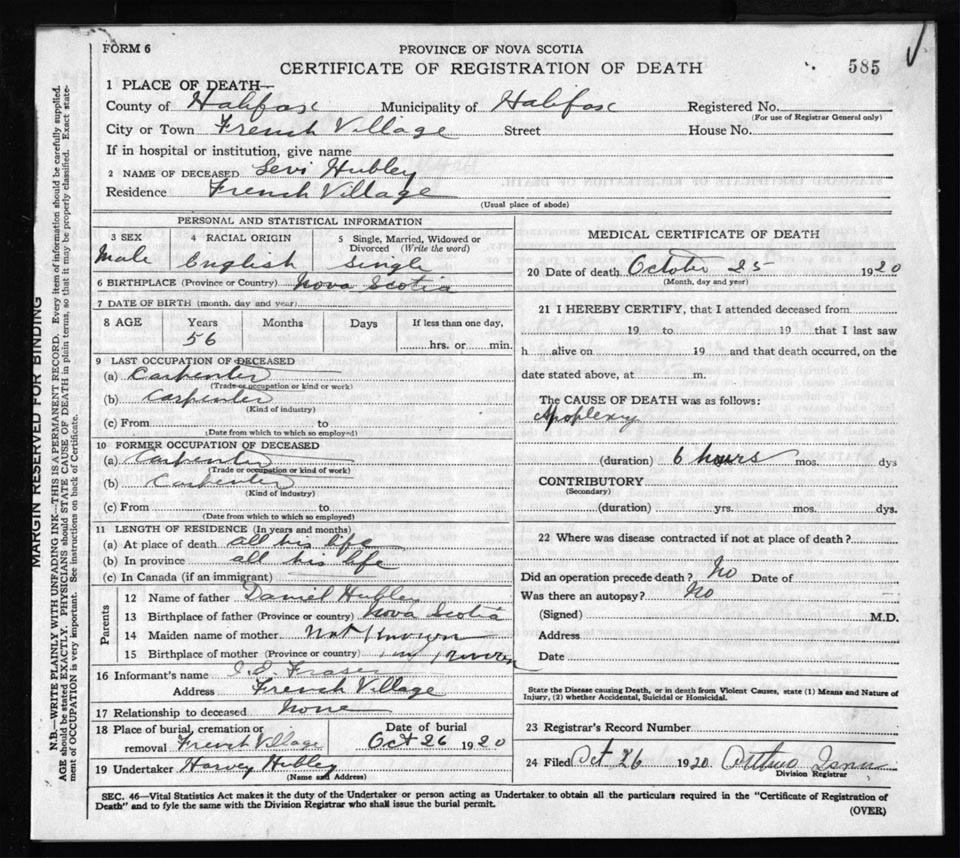 FORM 6
PROVINCE OF NOVA SCOTIA
CERTIFICATE OF REGISTRATION OF DEATH
585
1 PLACE OF DEATH—
County of Halifax Municipality of Halifax Registered No.
(For use of Registrar General only)
City or Town French Village Street House No.
If in hospital or institution, give name
2 NAME OF DECEASED Levi Hubley
Residence French Village
(Usual place of abode)
PERSONAL AND STATISTICAL INFORMATION
3 SEX 4 RACIAL ORIGIN 5 Single, Married, Widowed or Divorced (Write the word)
Male English Single
6 BIRTHPLACE (Province or Country) Nova Scotia
7 DATE OF BIRTH (month, day and year)
8 AGE Years Months Days If less than one day,
56 hrs. or min.
9 LAST OCCUPATION OF DECEASED
(a) Carpenter
(Trade or occupation or kind of work)
(b) Carpenter
(Kind of industry)
(c) From to
(Date from which to which so employed)
10 FORMER OCCUPATION OF DECEASED
(a) Carpenter
(Trade or occupation or kind of work)
(b) Carpenter
(Kind of industry)
(c) From to
(Date from which to which so employed)
11 LENGTH OF RESIDENCE (In years and months)
(a) At place of death all his life
(b) In province all his life
(c) In Canada (if an immigrant)
Parents
12 Name of father Daniel Hubley
13 Birthplace of father (Province or country) Nova Scotia
14 Maiden name of mother Not Known
15 Birthplace of mother (Province or country)
16 Informant's name Fraser
Address French Village
17 Relationship to deceased None
18 Place of burial, cremation or removal French Village
Date of burial
Oct 26 1920
19 Undertaker Harvey Hubley
(Name and Address)
MEDICAL CERTIFICATE OF DEATH
20 Date of death October 25 1920
(Month, day and year)
21 I HEREBY CERTIFY, that I attended deceased from
19 to 19 that I last saw
h alive on 19 and that death occurred, on the
date stated above, at m.
The CAUSE OF DEATH was as follows:
Apoplexy
(duration) 6 hours mos. dys
CONTRIBUTORY
(Secondary)
(duration) yrs. mos. dys.
22 Where was disease contracted if not at place of death?
Did an operation precede death? No Date of
Was there an autopsy? No
(Signed) M.D.
Address
Date
State the Disease causing Death, or in death from Violent Causes, state (1) Means and Nature of
Injury, (2) whether Accidental, Suicidal or Homicidal.
23 Registrar's Record Number
24 Filed Oct 26 1920
Division Registrar
SEC. 46—Vital Statistics Act makes it the duty of the Undertaker or person acting as Undertaker to obtain all the particulars required in the "Certificate of Registration of
Death" and to fyle the same with the Division Registrar who shall issue the burial permit.
(OVER)
MARGIN RESERVED FOR BINDING
N.B.—WRITE PLAINLY WITH UNFADING INK—THIS IS A PERMANENT RECORD. Every item of information should be carefully supplied.
AGE should be stated EXACTLY. PHYSICIANS should STATE CAUSE OF DEATH in plain terms, so that it may be properly classified. Exact state-
ment of OCCUPATION is very important. See instructions on back of Certificate.